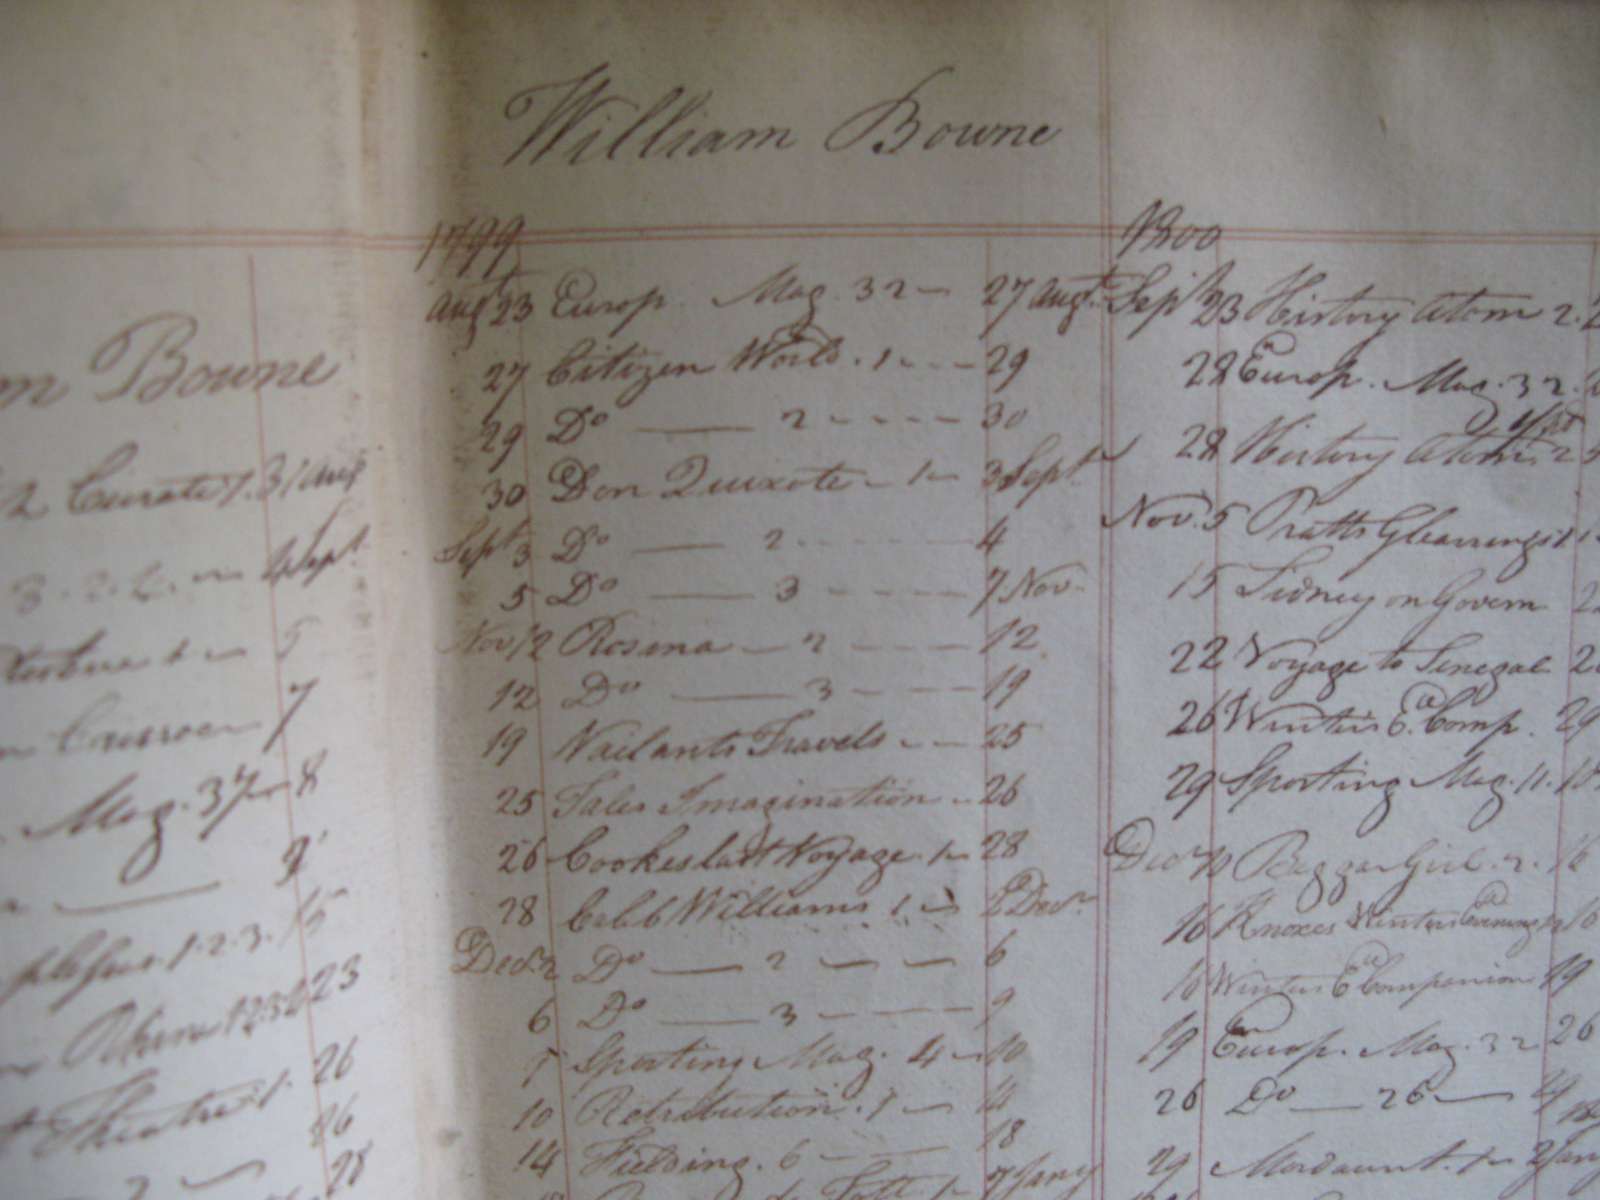 William Bowne
Bowne
Curate 1. 31 Aug
Sept
5
7
Mag. 37 - 8
9
1.2.3. 15
23
Theatre 1. 26
26
28
1799
Augt 23 Europ. Mag. 32 - 27 Augt
27 Citizen World. 1 - - - 29
29 Do — 2 - - - - 30
30 Don Quixote - 1 - 3 Sept
Sept 3 Do — 2 - - - - 4
5 Do — 3 - - - - 7 Nov.
Nov 12 Rosina — 2 - - - 12
12 Do — 3 - - - 19
19 Vailants Travels - - - 25
25 Tales Imagination - - 26
26 Cookes last Voyage. 1 - 28
28 Caleb Williams 1 - 2 Decr
Decr 2 Do — 2 — — — 6
6 Do — 3 - - - 9
Sporting Mag. 4 - 10
10 Retribution. 1 —
14 Fielding. 6 — 18
7 Jany
1800
Sept 23 History Atom 2.
28 Europ. Mag. 32.
28 History Atom 2
Nov. 5 Pratts Gleanings 1
15 Sidney on Govern
22 Voyage to Senegal
26 Winter's Eg. Comp. 29
29 Sporting Mag. 11. 10
Decr 10 Beggar Girl. 2. 16
16 Knoxes Winter Evenings
Winter Eg Companion 19
19 Europ. Mag. 32 26
26 Do — 26 — 29
29 Mordaunt. 1 - 2 Jany